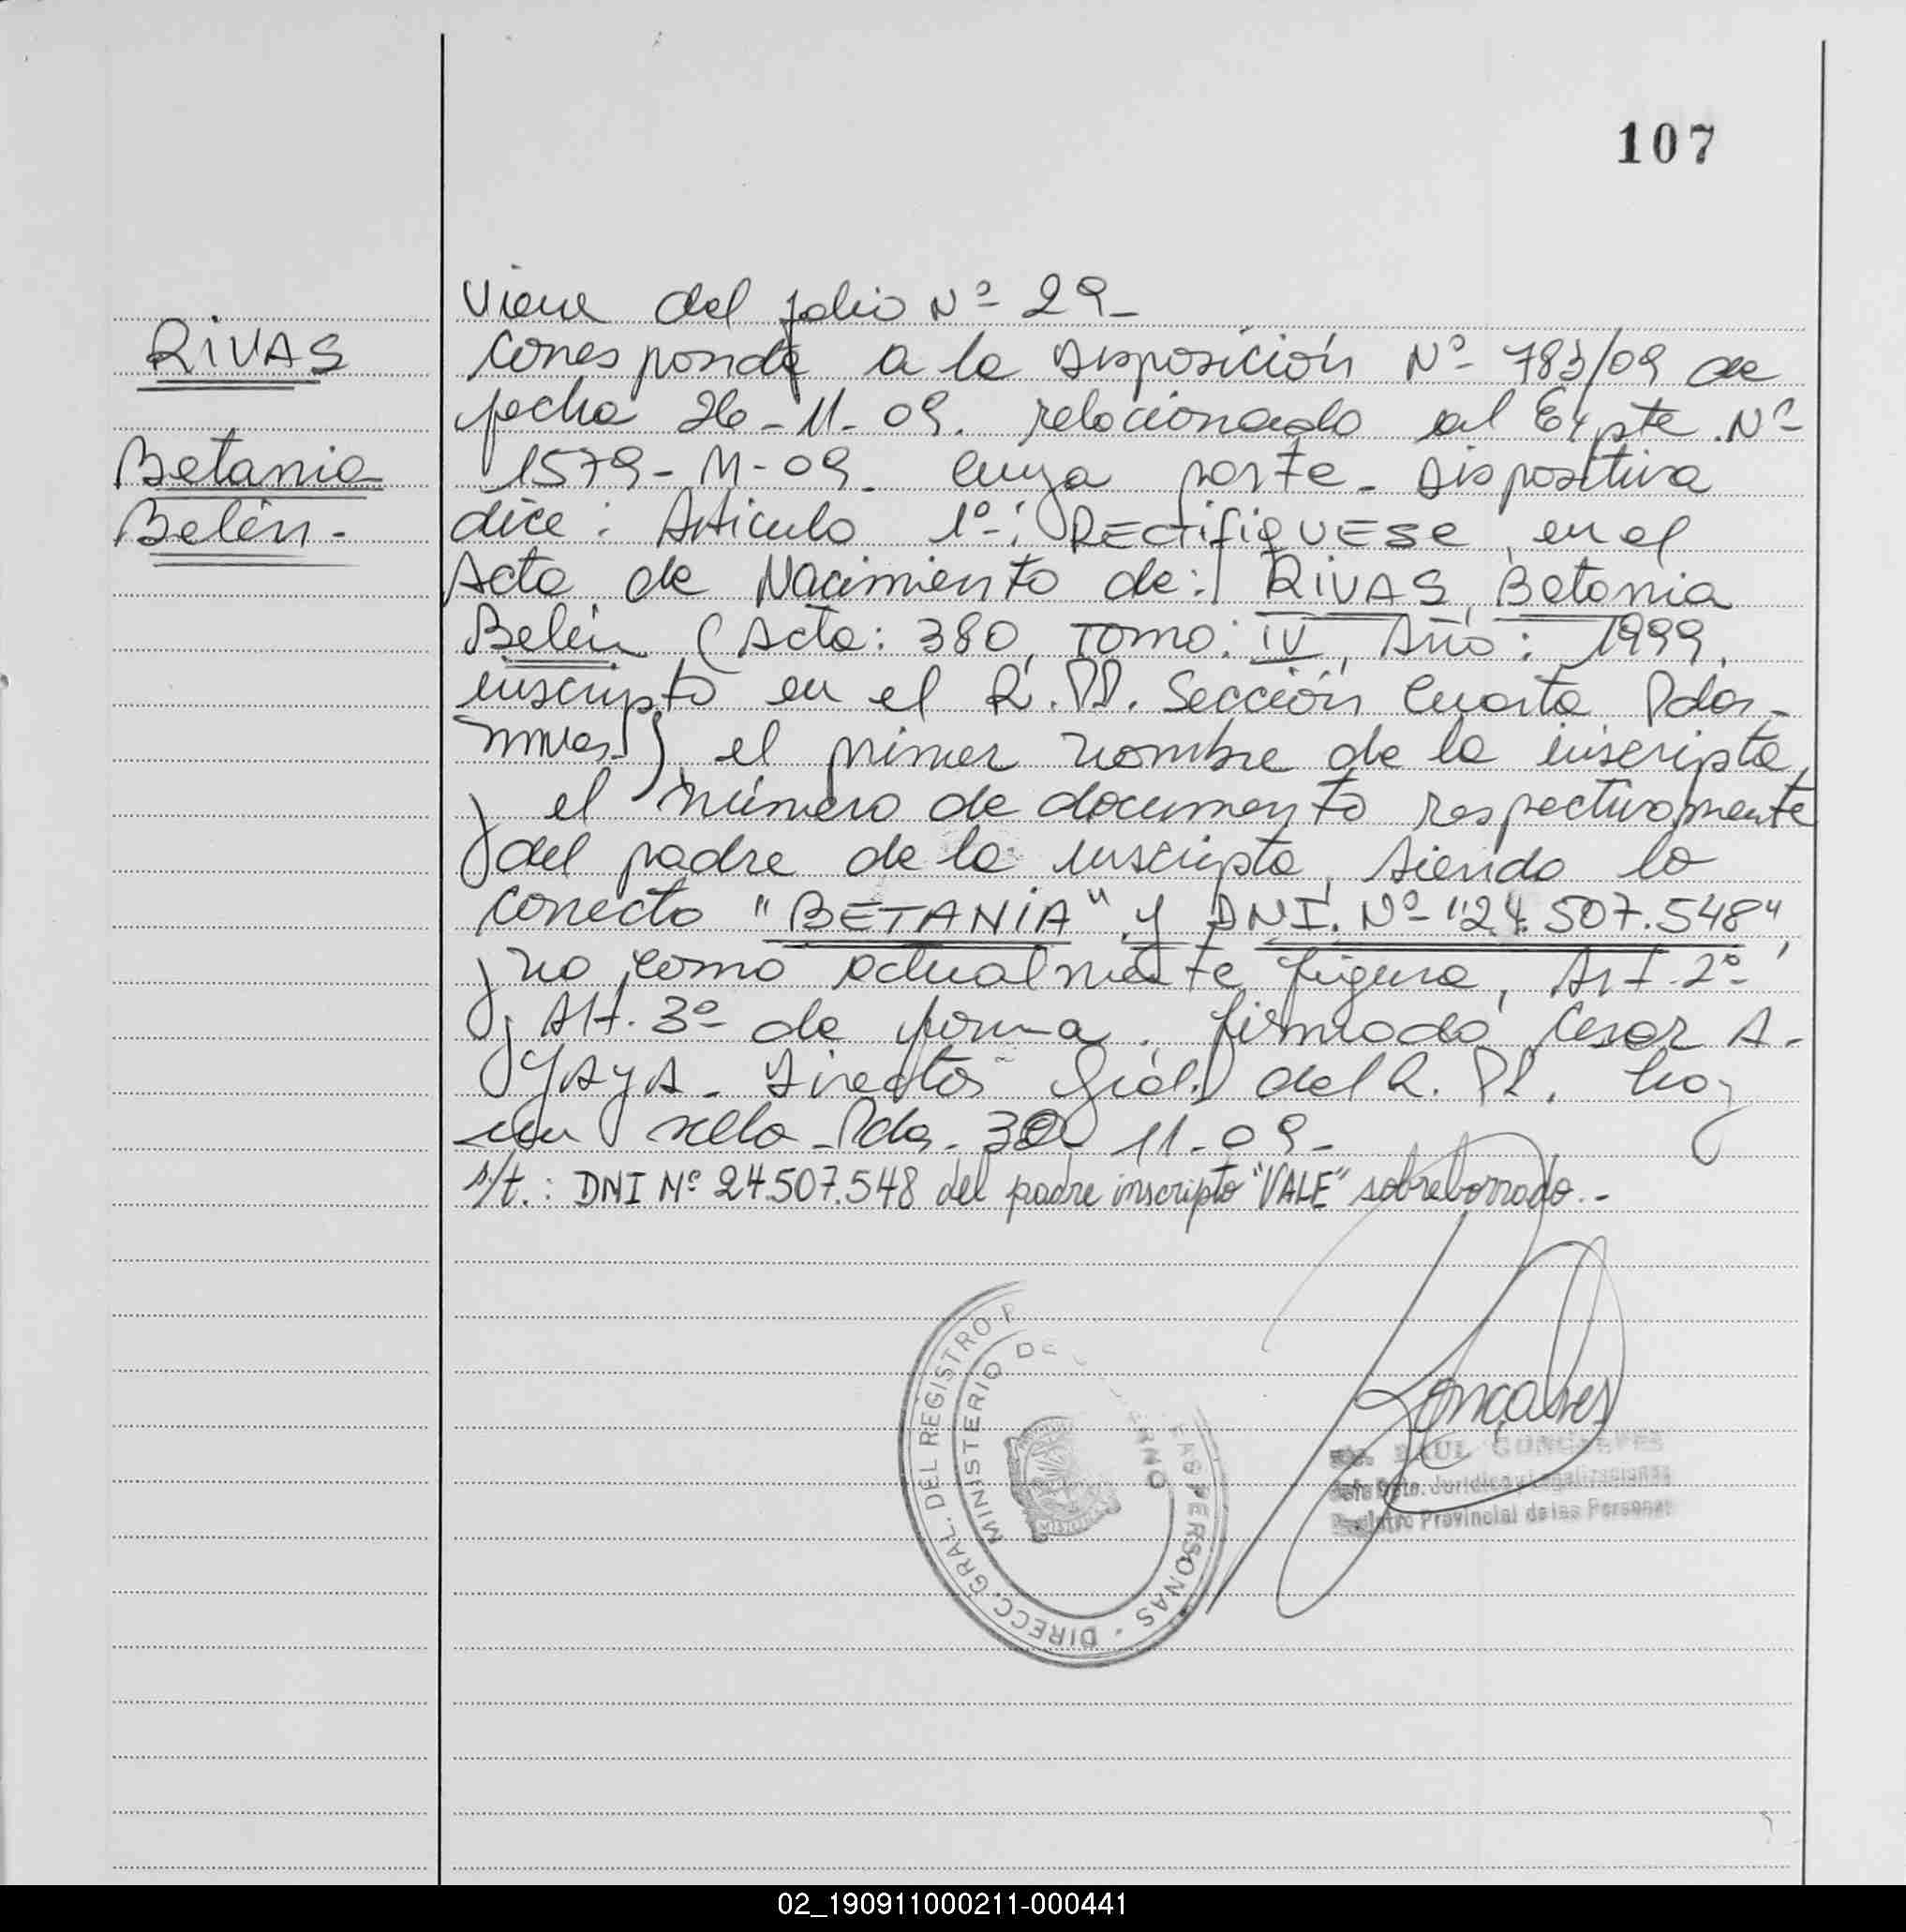 107
RIVAS
Betania
Belén.-
Viene del folio Nº 29_
Corresponde a la Disposición Nº 783/09 de
fecha 26-11-09. relacionado al Expte. Nº
1579-M-09. cuya parte Dispositiva
dice: Articulo 1º: RECTIFIQUESE, en el
Acta de Nacimiento de: RIVAS, Betania
Belén (Acta: 380, Tomo: IV, Año: 1999,
inscripto en el R.PP. Sección Cuarta Pdas,-
mnes.), el primer nombre de la inscripta,
y el número de documento respectivamente
del padre de la inscripta, siendo lo
correcto "BETANIA" y DNI. Nº "24.507.548",
y no como actualmente figura, Art. 2º
y Art. 3º de forma. firmado Cesar A.
YAYA. Director Gral. del R. PP. hoy
un sello Pdas. 30-11-09-
s/t.: DNI Nº 24.507.548 del padre inscripto "VALE" sobreborrado.-
Gonçalves
RAUL GONCALVES
Jefe Dpto. Jurídico y Legalizaciones
Registro Provincial de las Personas
DIRECC. GRAL. DEL REGISTRO P LAS PERSONAS
MINISTERIO DE ERNO
MISIONES
02_190911000211-000441